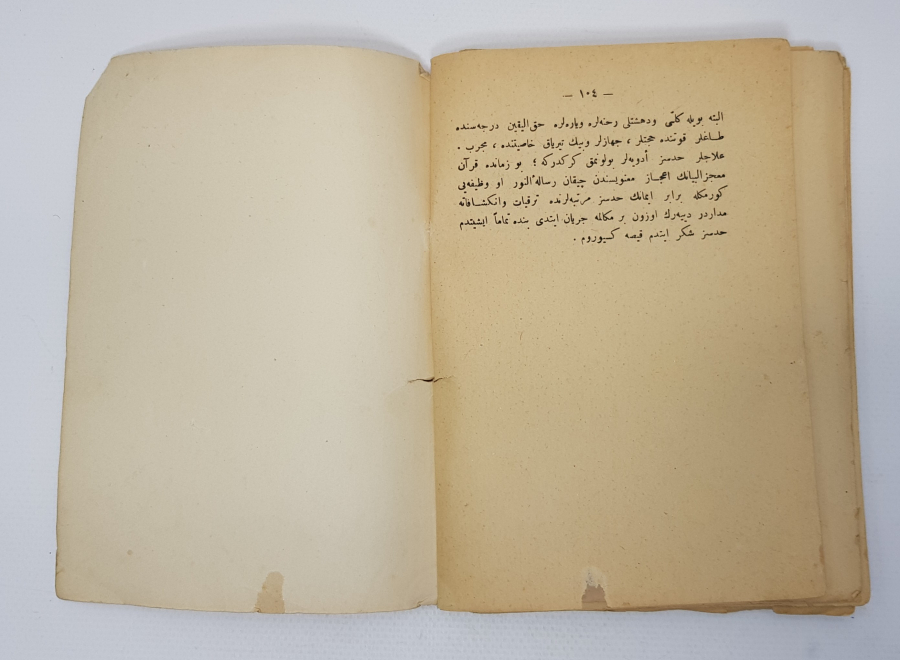 — ١٠٤ —
البته بويله كلّى ودهشتلى رخنه‌لره وياره‌لره حق اليقين درجه‌سنده
طاغلر قوتنده حجتلر ، جهازلر وبيك ترياق خاصيتنده ، مجرب .
علاجلر حدسز أدويه‌لر بولونمق كركدركه ؛ بو زمانده قرآن
معجز البيانك اعجاز معنويسندن چيقان رسالهٔ النور او وظيفه‌يى
كورمكله برابر ايمانك حدسز مرتبه‌لرنده ترقيات وانكشافاته
مداردر ديه‌رك اوزون بر مكالمه جريان ايتدى بنده تماماً ايشيتدم
حدسز شكر ايتدم قيصه كسيوروم .